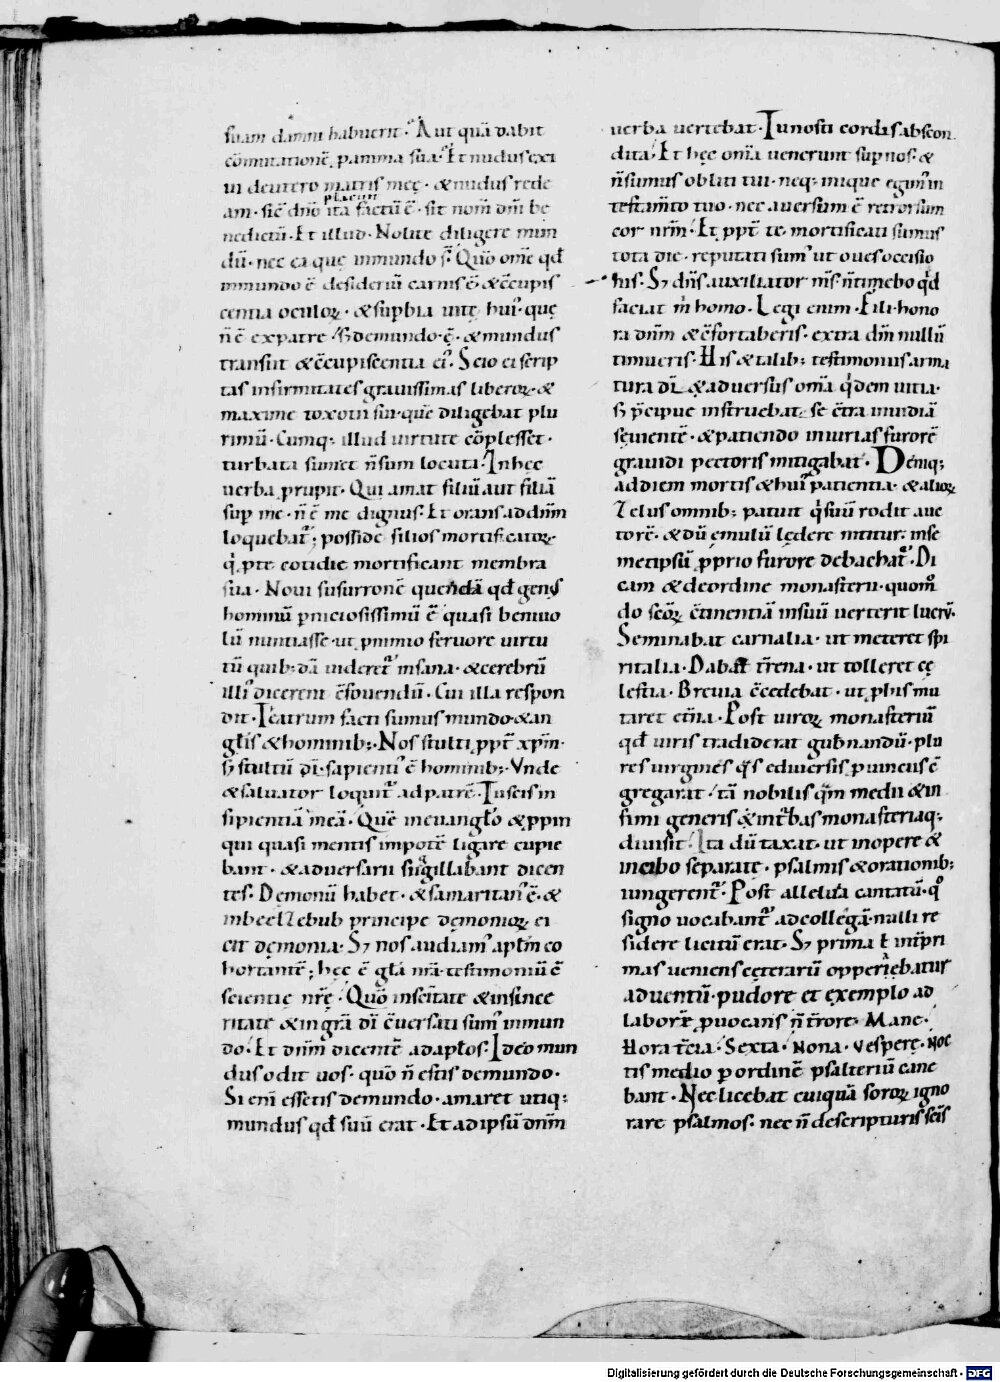 suam damni habuerit· Aut quā dabit
cōmutationē p anima sua· Et nudus exi
ui de utero matris meę· & nudus rede
am· sic̄ dn̄o placuit ita factū ē· sit nom̄ dn̄i be
nedictū· Et illud· Nolite diligere mun
dū· nec ea quę in mundo s̄· Qūo om̄e qd̄
in mundo ē desideriū carnis ē & c̄cupis
centia oculoꝝ· & supbia uitę hui᾽· quę
n̄ ē ex patre· s; de mundo ē· & mundus
transiit & c̄cupiscentia ei᾽· Scio ei scrip
tas infirmitates grauissimas liberoꝝ· &
maxime toxotii sui· quē diligebat plu
rimū· Cumq; illud uirtute cōplesset·
turbata sum et n̄ sum locuta· In hęc
uerba prupit· Qui amat filiū aut filiā
sup me· n̄ ē me dignus· Et orans ad dn̄m
loquebat᾽; posside filios mortificatoꝝ·
q̇ p te cotidie mortificant membra
sua· Noui susurronē quendā qd̄ gens
hominū pniciosissimū ē quasi beniuo
lū nuntiasse· ut p nimio feruore uirtu
tū quib; dā uideret᾽ insana· & cerebrū
illi᾽ dicerent c̄fouendū· Cui illa respon
dit· Teatrum facti sumus mundo & an
glis & hominib;· Nos stulti ppt̄ xp̄m·
s; stultū dī· sapienti᾽ ē hominib;· Vnde
& saluator loquit᾽ ad patrē· Tu scis in
sipientiā meā· Quē in euanglo & ppin
qui quasi mentis impotē ligare cupie
bant· & aduersarii sugillabant dicen
tes· Demoniū habet· & samaritan᾽ ē· &
in beelzebub principe demonioꝝ ei
cit dęmonia· S; nos audiam᾽ aplm̄ co
hortantē; hęc ē gla nr̄a· testimoniū ē
scientię nr̄ę· Quō in scītate & in since
ritate & in gra dī c̄uersati sum᾽ in mun
do· Et dn̄m dicentē ad aplos· Ideo mun
dus odit uos· quō n̄ estis de mundo·
Si eni essetis de mundo· amaret utiq;
mundus qd̄ suū erat· Et ad ipsū dn̄m
uerba uertebat· Tu nosti cordis abscon
dita· Et hęc om̄ia uenerunt sup nos· &
n̄ sumus obliti tui· neq; inique egim᾽ in
testam̄to tuo· nec auersum ē retrorsum
cor nr̄m· Et ppt̄ te mortificati sumus
tota die· reputati sum᾽ ut oues occisio
nis· S; dn̄s auxiliator m̄s· n̄ timebo qd̄
faciat m̄ homo· Legi enim· Fili hono
ra dn̄m & c̄fortaberis· extra dn̄m nullū
timueris· His & talib; testimoniis arma
tura dī· & aduersus om̄ia q̇dem uitia·
s; pcipue instruebat se c̄tra inuidiā
seuientē· & patiendo iniurias furorē
grauidi pectoris mitigabat· Deniq;
ad diem mortis & hui᾽ patientia· & alioꝝ
zelus omnib; patuit q̇ suū rodit auc
torē· & dū emulū lędere nititur· in se
metipsū pprio furore debachat᾽· Di
cam & de ordine monasterii· quom̊
do scoꝝ c̄tinentiā in suū uerterit lucrū·
Seminabat carnalia· ut meteret spi
ritalia· Dabat trena· ut tolleret cę
lestia· Breuia c̄cedebat· ut p his mu
taret etn̄a· Post uiroꝝ monasteriū
qd̄ uiris tradiderat gubnandū· plu
res uirgines q̇s e diuersis puinciis c̄
gregarat· tā nobilis q̄m medii & in
fimi generis & in tr̄bas monasteriaq;
diuisit· Ita dū taxat· ut in opere &
in cibo separatę· psalmis & orationib;
iungerent᾽· Post alleluia cantatū· q̊
signo uocabant᾽ ad collegā· nulli re
sidere licitū erat· S; prima ł int᾽ pri
mas ueniens cęterarū opperiebatur
aduentū· pudore et exemplo ad
laborē puocans n̄ trrore· Mane·
Hora tcia· Sexta· Nona· Vespere· Noc
tis medio p ordinē psalteriū cane
bant· Nec licebat cuiquā soroꝝ igno
rare psalmos· nec n̄ de scripturis scīs
Digitalisierung gefördert durch die Deutsche Forschungsgemeinschaft - DFG